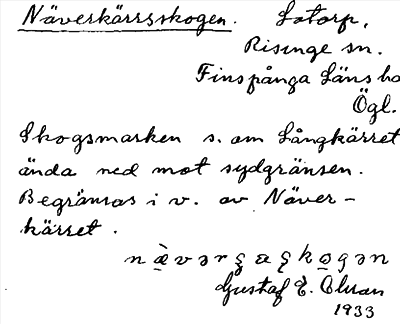 Näverkärrsskogen. Lotorp,
Risinge sn.
Finspånga Läns hd
Ögl.
Skogsmarken s. om Långkärret
ända ned mot sydgränsen.
Begränsas i v. av Näver-
kärret.
Gustaf E.
1933